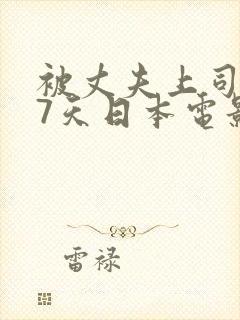 被丈夫上司
7天日本电影
雷禄